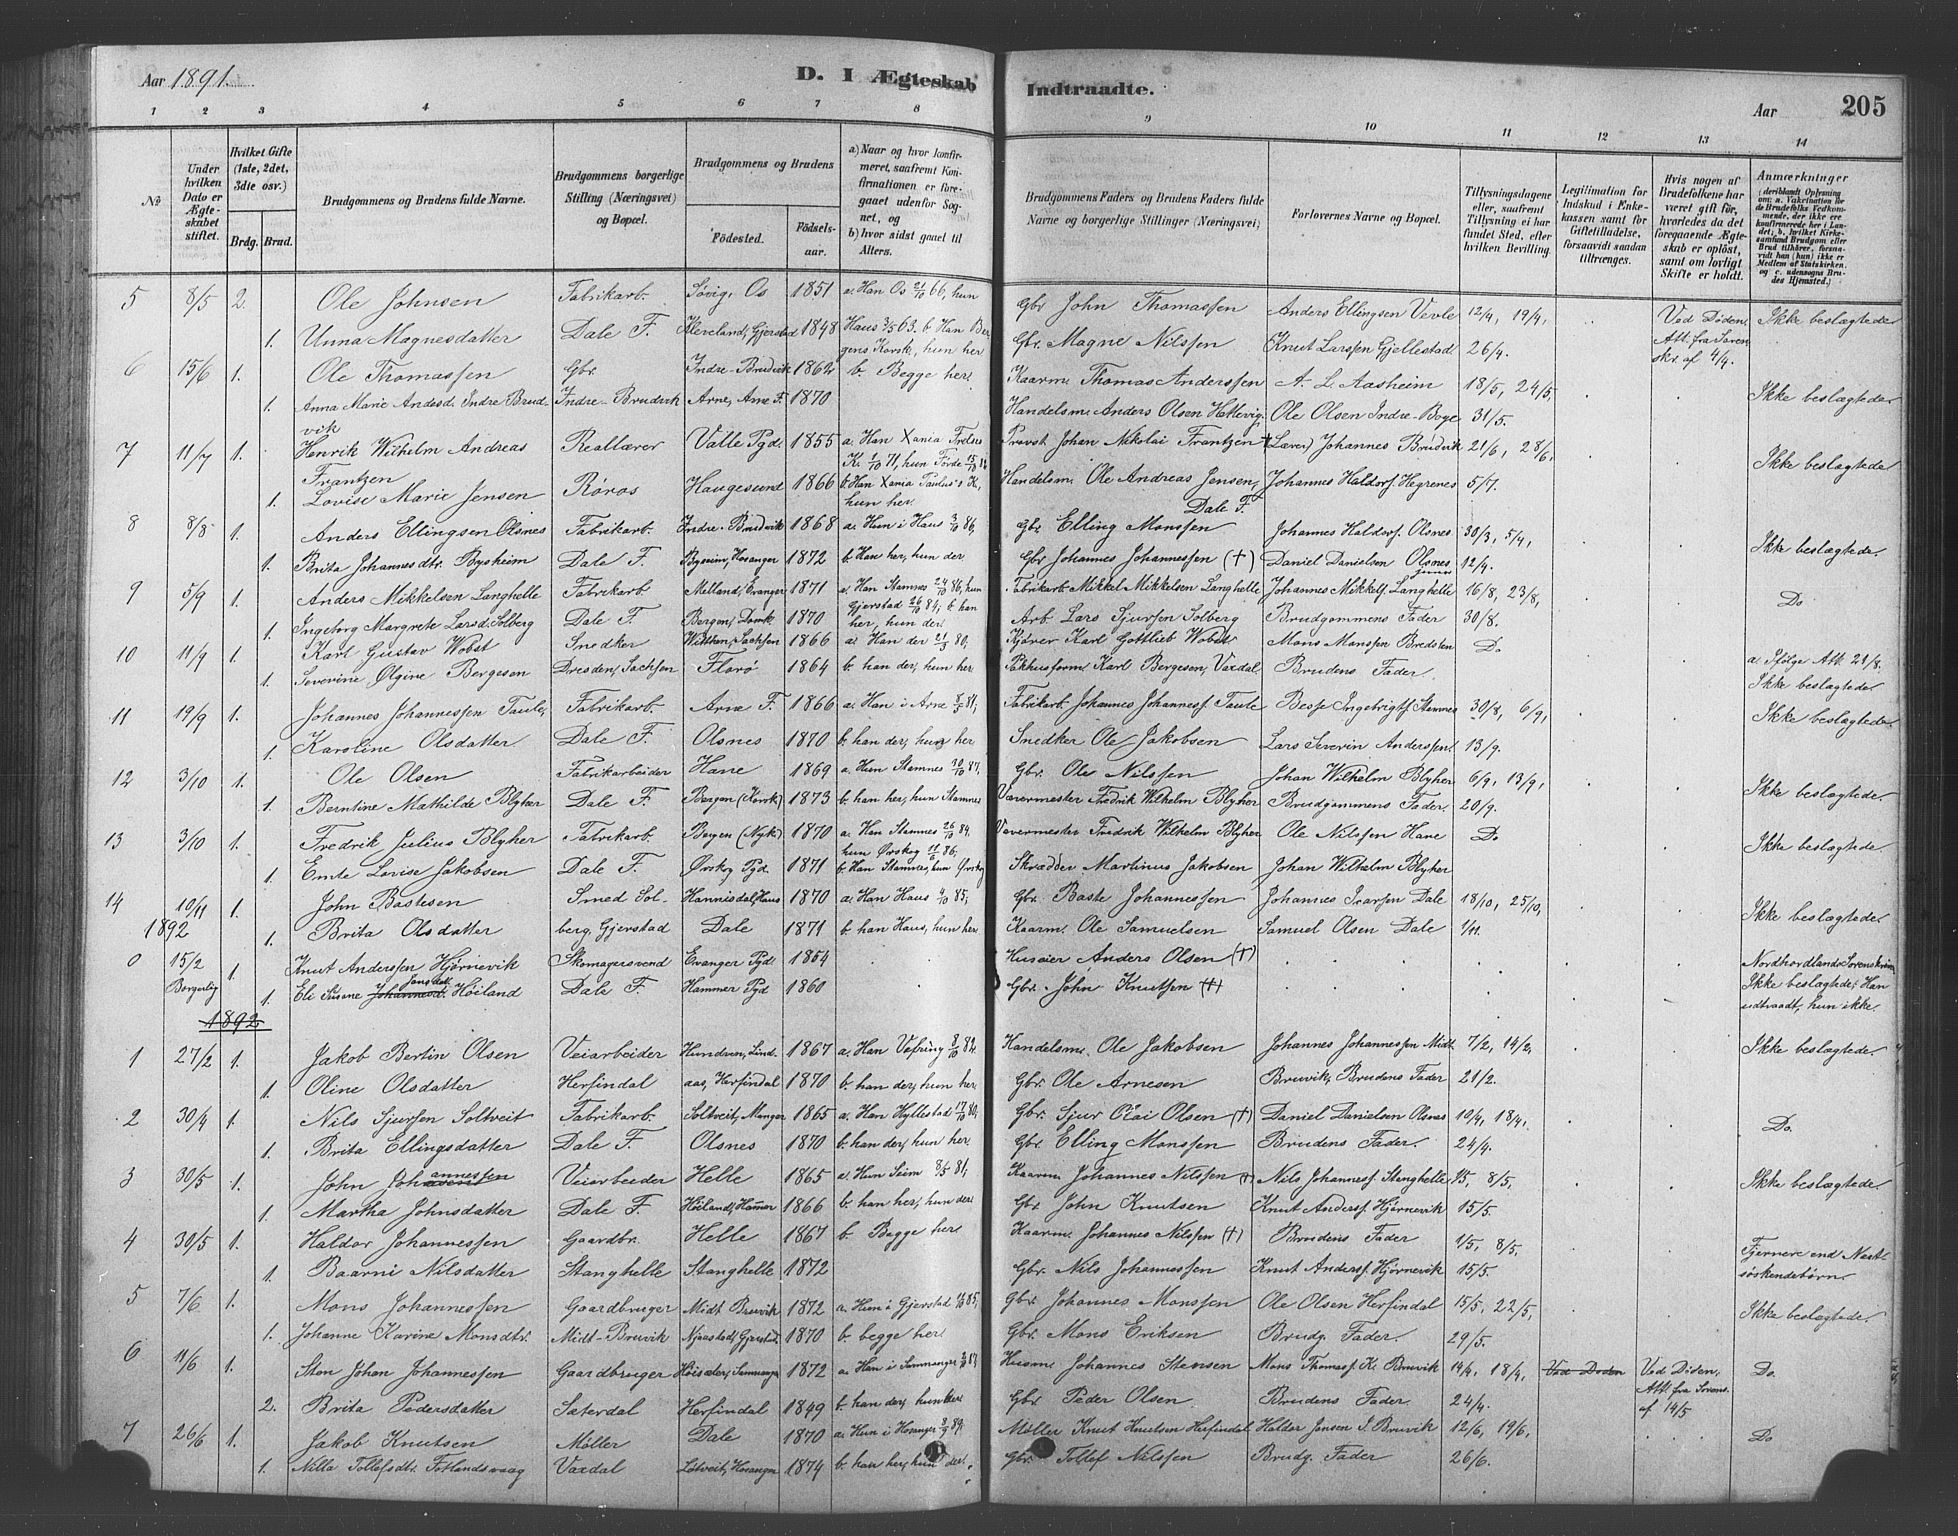 Aar 1891.
D. I Ægteskab Indtraadte.
Aar 205
1 2 3 4 5 6 7 8 9 10 11 12 13 14
No
Under hvilken Dato er Ægteskabet stiftet.
Hvilket Gifte (1ste, 2det, 3die osv.)
Brdg. Brud.
Brudgommens og Brudens fulde Navne.
Brudgommens borgerlige Stilling (Næringsvei) og Bopæl.
Brudgommens og Brudens
Fødested. Fødselsaar.
a) Naar og hvor konfirmeret, saafremt Konfirmationen er foregaaet udenfor Sognet, og
b) hvor sidst gaaet til Alters.
Brudgommens Faders og Brudens Faders fulde Navne og borgerlige Stillinger (Næringsvei)
Forlovernes Navne og Bopæl.
Tillysningsdagene eller, saafremt Tillysning ei har fundet Sted, efter hvilken Bevilling.
Legitimation for Indskud i Enkekassen samt for Giftetilladelse, forsaavidt saadan tiltrænges.
Hvis nogen af Brudefolkene har været gift før, hvorledes da det foregaaende Ægteskab er opløst, samt om lovligt Skifte er holdt.
Anmærkninger (deriblandt Oplysning om: a. Vakcination for de Brudefolks Vedkommende, der ikke ere konfirmerede her i Landet; b. hvilket Kirkesamfund Brudgom eller Brud tilhører, forsaavidt han (hun) ikke er Medlem af Statskirken, og c. udensogns Brudes Hjemsted.)
5 8/5 2. Ole Johnsen Fabrikarb. Søvig, Os 1851 a. Han Os 21/10 66, hun Gbr John Thomassen Anders Ellingsen Vevle 12/4, 19/4, Ved Døden, Ikke beslægtede
1. Unna Magnesdatter Dale F. Kleveland, Gjerstad 1848 Haus 3/5 63. b. Han Ber- Gbr. Magne Nilssen Knut Larssen Gjellestad 26/4. Att. fra Soren-
gens Korsk, hun her skr. af 4/4.
6 15/6 1. Ole Thomassen Gbr Indre-Bruvik 1862 b. Begge her. Kaarm. Thomas Anderssen A. L. Aasheim 18/5, 24/5, Ikke beslægtede
1. Anna Marie Andersd. Indre Brud- Indre-Brudvik Arne, Arne F. 1870 Handelsm. Anders Olsen Hettevig. Ole Olsen Indre-Boge 31/5.
vik
7 11/7 1. Henrik Wilhelm Andreas Reallærer Valle Pgd. 1855 a. Han Xania Frelsers Provst Johan Nikolai Frantzen + (Lærer) Johannes Brudvik 21/6, 28/6, Ikke beslægtede
Frantzen K. 1/10 71, hun Førde 15/10 82
1. Lovise Marie Jensen Røros Haugesund 1866 b. Han Xania Paulus's K, Handelsm. Ole Andreas Jensen, Johannes Haldors. Hegrenes 5/7.
hun her Dale F.
8 8/8 1. Anders Ellingsen Olsnes Fabrikarb. Indre-Brudvik 1868 a. Hun i Haus 3/10 86, Gbr. Elling Monssen Johannes Haldors. Olsnes 30/3, 5/4, Ikke beslægtede.
1. Brita Johannesdtr. Bysheim Dale F. Byseim, Hosanger 1872 b. Han her, hun der Gbr Johannes Johannessen (+) Daniel Danielsen Olsnes 12/4.
9 5/9 1. Anders Mikkelsen Langhelle Fabrikarb. Melland, Evanger 1871 a. Han Stamnes 24/10 86, hun Fabrikarb Mikkel Mikkelsen Langhelle Johannes Mikkels. Langhelle 16/8, 23/8, Do
Gjerstad 26/10 84; b han
1. Ingeborg Margrete Larsd. Solberg Dale F. Bergen, Domk 1870 her, hun der. Arb. Lars Sjursen Solberg Brudgommens Fader 30/8.
10 11/9 1. Karl Gustav Wobst Snedker Wilthen, Sachsen 1866 a. Han der 21/3 80, Kjører Karl Gottlieb Wobst Mons Monssen Bredsten Do a. Ifølge Att. 21/8.
1. Severine Olgine Bergesen Dresden, Sachsen Florø 1864 b. han der, hun her Pakhusform Karl Bergesen, Vaxdal Brudens Fader Ikke beslægtede
11 19/9 1. Johannes Johannessen Taule, Fabrikarb. Arne F. 1866 a. Han i Arne 8/5 81, Fabrikarb. Johannes Johannesf. Taule Besse Ingebrigtf. Stamnes 30/8, 6/9, Ikke beslægtede
1. Karoline Olsdatter Dale F. Olsnes 1870 b. han der, hun her Snedker Ole Jakobsen Lars Severin Anderssen 13/9.
12 3/10 1. Ole Olsen Fabrikarbeider Hane 1869 a. Hun Stamnes 30/10 87, Gbr. Ole Nilssen Johan Wilhelm Blyher 6/9, 13/9, Ikke beslægtede.
1. Berntine Mathilde Blyher Dale F. Bergen (Korsk) 1873 b. han her, hun Stamnes Vævermester Fredrik Wilhelm Blyher Brudgommens Fader. 20/9.
13 3/10 1. Fredrik Julius Blyher Fabrikarb. Bergen (Nyk) 1870 a. Han Stamnes 26/10 84, Vævermester Fredrik Wilhelm Blyher Ole Nilssen Hane Do Ikke beslægtede.
hun Ørskog 11/6 86,
1. Emte Lovise Jakobsen Dale F. Ørskog Pgd. 1871 b. Han Stamnes, hun Ørskog Skrædder Martinus Jakobsen Johan Wilhelm Blyher
14 10/11 1. John Bastesen Smed Sol- Hannisdal, Haus 1870 a. Han Haus 4/10 85, Gbr. Baste Johannessen Johannes Ivarsen Dale 18/10, 25/10, Ikke beslægtede
1892
1. Brita Olsdatter berg, Gjerstad Dale 1871 b. han Haus, hun her Kaarm. Ole Samuelsen Samuel Olsen Dale 1/11.
0 15/2 1. Knut Anderssen Hjørnevik Skomagersvend Evanger Pgd. 1864 Huseier Anders Olsen (+) Nordhordlands Sorenskriveri
Borgerlig 1. Eli Susane Johannesd. Jonsdtr. Høiland Dale F. Hammer Pgd 1860 Gbr. John Knutsen (+) Ikke beslægtede; Han
1892 udtraadt, hun ikke.
1 27/2 1. Jakob Bertin Olsen Veiarbeider Hundven, Lind- 1867 a. Han Vefring 8/10 82, Handelsm. Ole Jakobsen Johannes Johannessen Midt- 7/2, 14/2, Ikke beslægtede.
1. Oline Olsdatter Herfindal aas, Herfindal 1870 b. han der, hun her Gbr. Ole Arnesen Bruvik, Brudens Fader 21/2.
2 30/4 1. Nils Sjursen Soltveit Fabrikarb. Soltveit, Manger 1865 a. Han Hyllestad 17/10 80, Gbr. Sjur Olai Olsen (+) Daniel Danielsen Olsnes 10/4, 18/4, Do.
1. Brita Ellingsdatter Dale F. Olsnes 1870 b. han der, hun her Gbr. Elling Monssen Brudens Fader. 24/4.
3 30/5 1. John Johannessen Veiarbeider Helle 1865 a. Hun Seim 8/5 81, Kaarm Johannes Nilssen (+) Nils Johannesf Stenghelle 1/5, 8/5, Ikke beslægtede.
1. Martha Johnsdatter Dale F. Høiland, Hamer 1866 b. han her, hun der Gbr. John Knutsen Knut Andersf. Hjørnevik 15/5.
4 30/5 1. Haldor Johannessen Gaardbr. Helle 1867 b. Begge her Kaarm. Johannes Nilssen (+) Brudens Fader 1/5, 8/5. Fjernere end Næst-
1. Baarni Nilsdatter Stanghelle Stanghelle 1872 Gbr. Nils Johannessen Knut Andersf. Hjørnevik 15/5. søskendebørn.
5 7/6 1. Mons Johannessen Gaardbruger Midt Bruvik 1872 a. Hun i Gjerstad 4/10 85, Gbr. Johannes Monssen Ole Olsen Herfindal 15/5, 22/5, Ikke beslægtede.
1. Johanne Karine Monsdtr. Midt-Bruvik Njaastad, Gjerstad 1870 b. begge her Gbr. Mons Eriksen Brudg. Fader. 29/5.
6 11/6 1. Sten Johan Johannessen Gaardbruger Høisæter, Samnanger 1872 a. Han i Samnanger Husm. Johannes Stensen Mons Thomasf. K. Bruvik 14/4, 18/4, Ved Døden Ved Døden, Do.
Att. fra Sorens.
2. Brita Pedersdatter Saterdal Herfindal 1849 b. han der, hun her Gbr. Peder Olsen Brudens Fader. 24/4. af 14/5
7 26/6 1. Jakob Knutsen Møller Dale 1870 a. Hun i Hosanger 8/9 89, Møller Knut Knutsen Herfindal Haldor Jonsen I. Bruvik 12/6, 19/6, Do
1. Nilla Tollefsdtr. Fotlandsvaag Vaxdal Løtveit, Hosanger 1874 b. han her, hun der. Gbr. Tollef Nilssen Brudg. Fader 26/6.